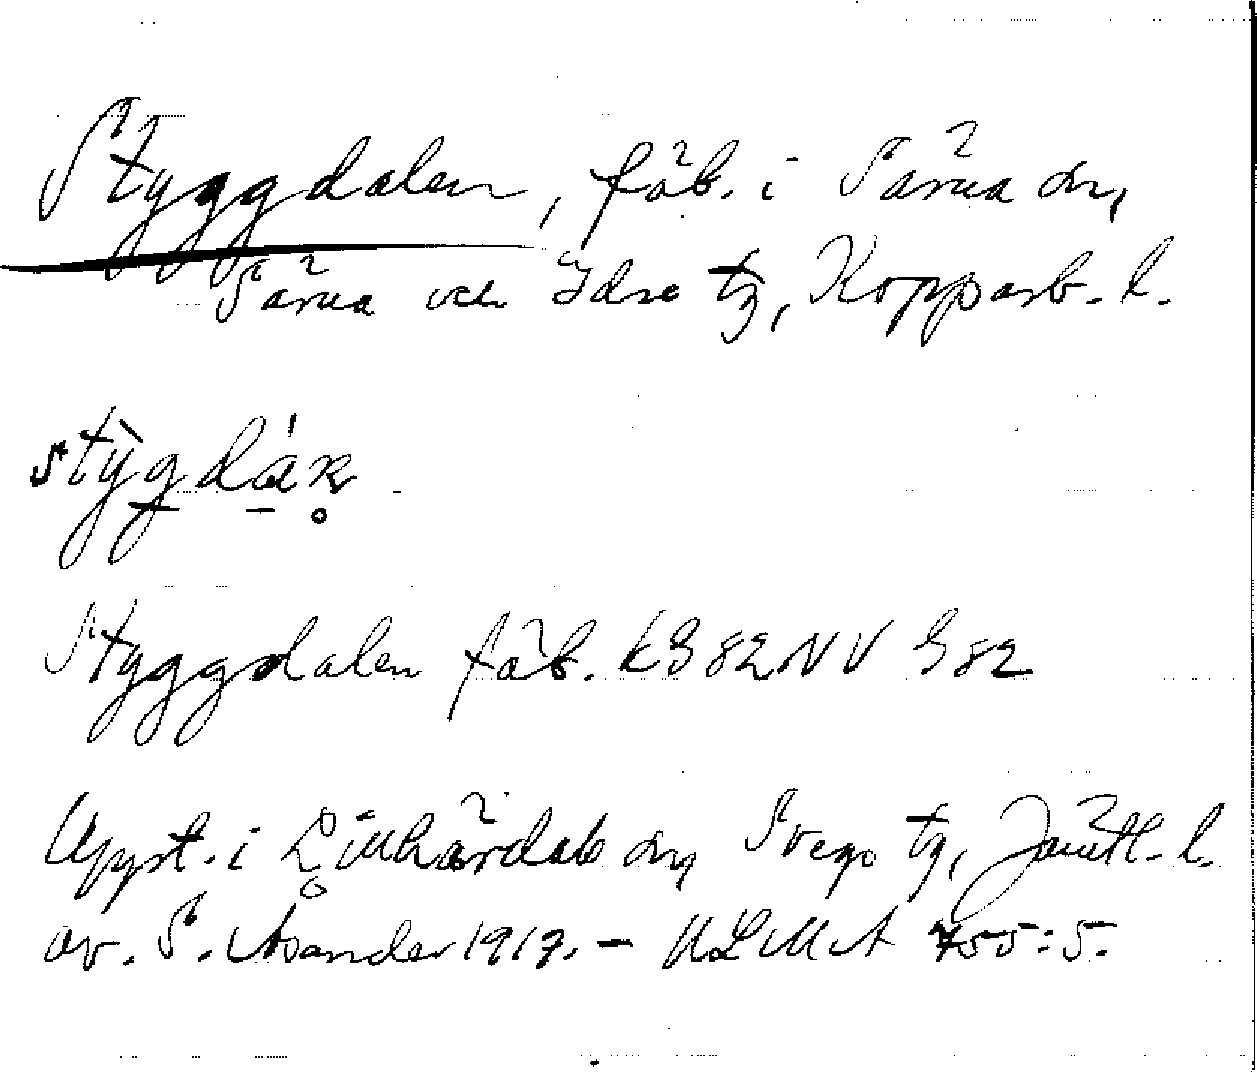 Styggdalen, fäb. i Särna sn,
Särna och Idre tg, Kopparb. l.
Styggdalen fäb. EB 82 NV G 82
Uppt. i Linhärdals sn, Svegs tg, Jämtl. l.
av S. Åsander 1917. – ULMA 755:5.